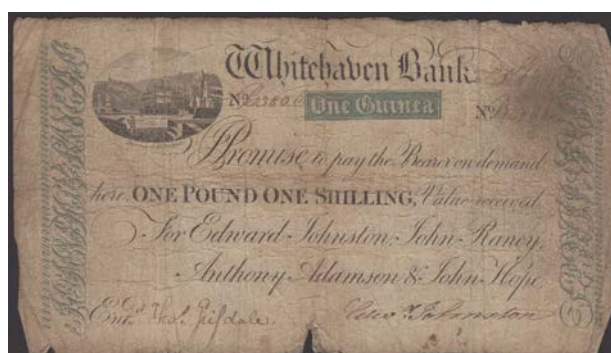 Whitehaven Bank
No One Guinea No
I Promise to pay the Bearer on demand
here, ONE POUND ONE SHILLING, Value received
For Edward Johnston, John Raney,
Anthony Adamson & John Hope,
Entd
Edwd Johnston